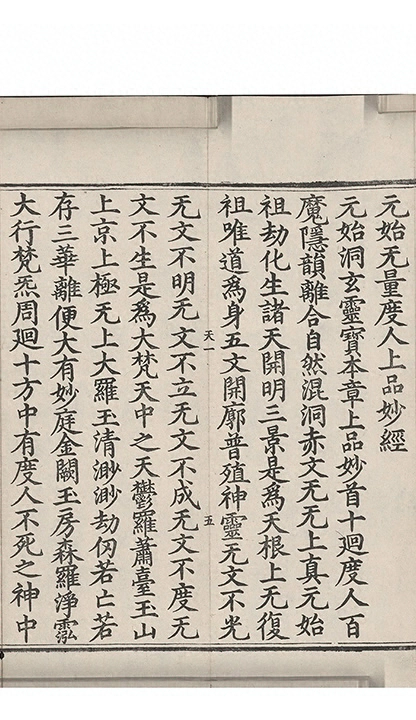 元始无量度人上品妙經
元始洞玄靈寶本章上品妙首十廻度人百
魔隱韻離合自然混洞赤文无无上真元始
祖劫化生諸天開明三景是為天根上无復
祖唯道為身五文開廓普殖神靈无文不光
天一
五
无文不明无文不立无文不成无文不度无
文不生是為大梵天中之天鬱羅蕭臺玉山
上京上極无上大羅玉清渺渺劫仞若亡若
存三華離便大有妙庭金闕玉房森羅淨泓
大行梵炁周廻十方中有度人不死之神中